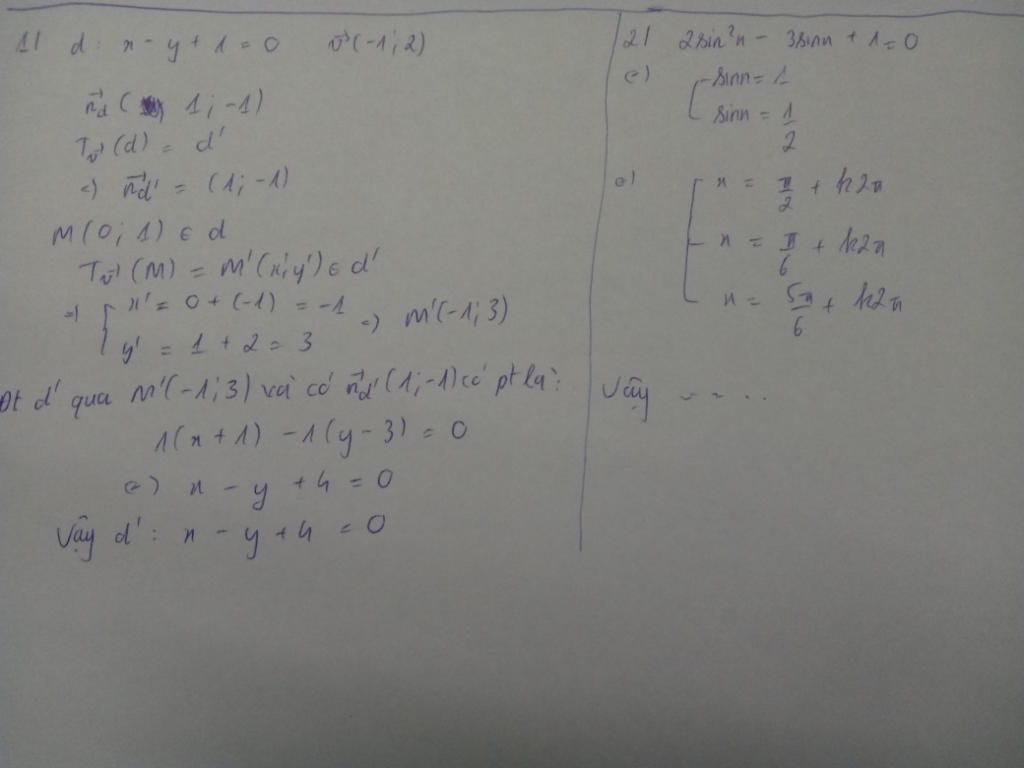 1) d: x - y + 1 = 0 v⃗(-1; 2)
n⃗d (1; -1)
Tv⃗ (d) = d'
=) n⃗d' = (1; -1)
M(0; 1) ∈ d
Tv⃗ (M) = M'(x'; y') ∈ d'
=) { x' = 0 + (-1) = -1
y' = 1 + 2 = 3 =) M'(-1; 3)
Đt d' qua M'(-1; 3) và có n⃗d'(1; -1) có pt là:
1(x + 1) - 1(y - 3) = 0
(=) x - y + 4 = 0
Vậy d': x - y + 4 = 0
2) 2sin²x - 3sinx + 1 = 0
(=) [ sinx = 1
sinx = 1/2
(=) [ x = π/2 + k2π
x = π/6 + k2π
x = 5π/6 + k2π
Vậy ....